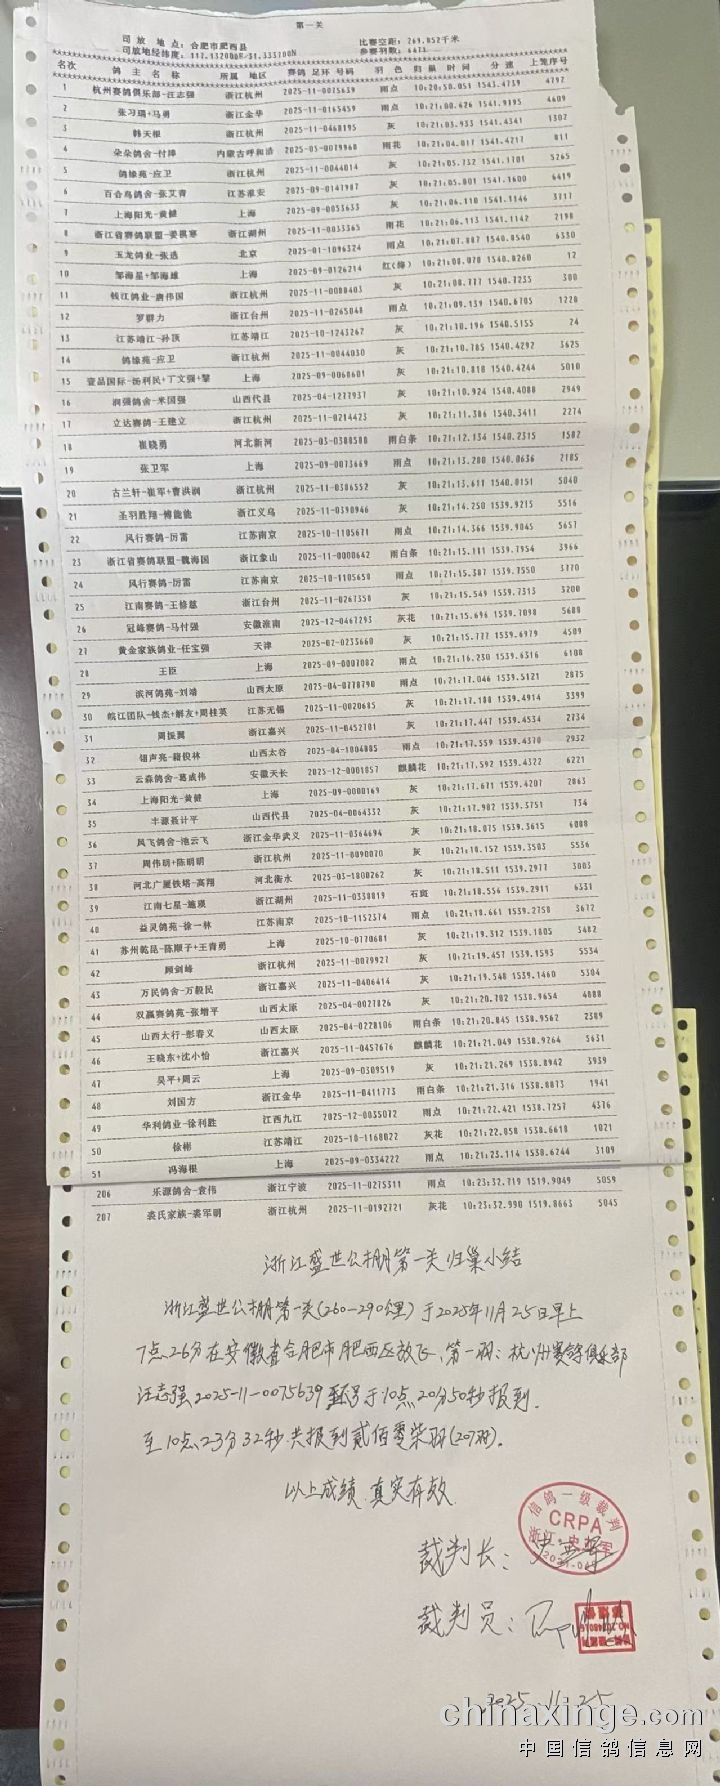 第一关
司放地点:合肥市肥西县 比赛空距:269.852千米
司放地经纬度:
名次 鸽主名称 所属地区 赛鸽足环号码 羽色 归巢时间 分速 上笼序号
1 杭州赛鸽俱乐部-汪志强 浙江杭州 2025-11-0075639 雨点 10:20:50.051 1543.4739 4792
2 张习瑞+马勇 浙江金华 2025-11-0165459 雨点 10:21:00.626 1541.9195 4609
3 韩天根 浙江杭州 2025-11-0468195 灰 10:21:03.933 1541.4341 1302
4 朵朵鸽舍-付峰 内蒙古呼和浩 2025-05-0079968 雨花 10:21:04.017 1541.4217 811
5 鸽缘苑-应卫 浙江杭州 2025-11-0044014 灰 10:21:05.732 1541.1701 5265
6 百合鸟鸽舍-张艾青 江苏淮安 2025-09-0141987 灰 10:21:05.801 1541.1600 6419
7 上海阳光-黄健 上海 2025-09-0053633 灰 10:21:06.110 1541.1146 3717
8 浙江湖州 2025-11-0033365 雨花 10:21:06.113 1541.1142 2198
9 玉龙鸽业-张选 北京 2025-01-1096324 雨点 10:21:07.887 1540.8540 6330
10 邹海星+邹海雄 上海 2025-09-0126214 红(绛) 10:21:08.078 1540.8260 12
11 钱江鸽业-唐伟国 浙江杭州 2025-11-0088403 灰 10:21:08.777 1540.7235 300
12 罗群力 浙江台州 2025-11-0265048 雨点 10:21:09.139 1540.6705 1228
13 江苏靖江-孙顶 江苏靖江 2025-10-1243267 灰 10:21:10.196 1540.5155 24
14 鸽缘苑-应卫 浙江杭州 2025-11-0044030 灰 10:21:10.785 1540.4292 3625
15 上海 2025-09-0060601 灰 10:21:10.818 1540.4244 5010
16 润强鸽舍-米国强 山西代县 2025-04-1277937 灰 10:21:10.924 1540.4088 2949
17 立达赛鸽-王建立 浙江杭州 2025-11-0214423 灰 10:21:11.386 1540.3411 2274
18 崔晓勇 河北新河 2025-03-0388588 雨白条 10:21:12.134 1540.2315 1582
19 张卫军 上海 2025-09-0073669 雨点 10:21:13.280 1540.0636 2185
20 古兰轩-崔军+曹洪润 浙江杭州 2025-11-0386552 灰 10:21:13.611 1540.0151 5040
21 圣羽胜翔-傅能能 浙江义乌 2025-11-0390946 灰 10:21:14.250 1539.9215 5516
22 风行赛鸽-厉雷 江苏南京 2025-10-1105671 雨点 10:21:14.366 1539.9045 5657
23 浙江省赛鸽联盟-魏海国 浙江象山 2025-11-0000642 雨白条 10:21:15.111 1539.7954 3966
24 风行赛鸽-厉雷 江苏南京 2025-10-1105658 雨点 10:21:15.387 1539.7550 3770
25 江南赛鸽-王修慈 浙江台州 2025-11-0267358 灰 10:21:15.549 1539.7313 3200
26 冠峰赛鸽-马付强 安徽淮南 2025-12-0467293 灰花 10:21:15.696 1539.7098 5688
27 黄金家族鸽业-任宝强 天津 2025-02-0233660 灰 10:21:15.777 1539.6979 4509
28 王臣 上海 2025-09-0007082 雨点 10:21:16.230 1539.6316 6108
29 滨河鸽苑-刘靖 山西太原 2025-04-0778790 雨点 10:21:17.046 1539.5121 2875
30 皖江团队-钱杰+解友+周桂英 江苏无锡 2025-11-0020685 灰 10:21:17.188 1539.4914 3399
31 周振翼 浙江嘉兴 2025-11-0452701 灰 10:21:17.447 1539.4534 2734
32 钿声亮-籍俊林 山西太谷 2025-04-1004885 雨点 10:21:17.559 1539.4370 2932
33 云淼鸽舍-葛成伟 安徽天长 2025-12-0001857 麒麟花 10:21:17.592 1539.4322 6221
34 上海阳光-黄健 上海 2025-09-0000169 灰 10:21:17.671 1539.4207 2863
35 丰源聂计平 山西代县 2025-04-0064332 灰 10:21:17.982 1539.3751 734
36 风飞鸽舍-池云飞 浙江金华武义 2025-11-0364694 灰 10:21:18.075 1539.3615 6088
37 周伟明+陈明明 浙江杭州 2025-11-0090070 灰 10:21:18.152 1539.3503 5536
38 河北广厦铁塔-高翔 河北衡水 2025-03-1800262 灰 10:21:18.511 1539.2977 3003
39 江南七星-施琪 浙江湖州 2025-11-0338819 石斑 10:21:18.556 1539.2911 6331
40 益灵鸽苑-徐一林 江苏南京 2025-10-1152374 雨点 10:21:18.661 1539.2758 3672
41 苏州乾昆-陈顺子+王青勇 上海 2025-10-0770681 灰 10:21:19.312 1539.1805 3482
42 顾剑峰 浙江杭州 2025-11-0079927 灰 10:21:19.457 1539.1593 5534
43 万民鸽舍-万毅民 浙江嘉兴 2025-11-0406414 灰 10:21:19.548 1539.1460 5304
44 双赢赛鸽苑-张增平 山西太原 2025-04-0027826 灰 10:21:20.782 1538.9654 4088
45 山西太行-彭春义 山西太原 2025-04-0228106 雨白条 10:21:20.845 1538.9562 2389
46 王晓东+沈小怡 浙江嘉兴 2025-11-0457676 麒麟花 10:21:21.049 1538.9264 5631
47 吴平+周云 上海 2025-09-0309519 灰 10:21:21.269 1538.8942 3939
48 刘国方 浙江金华 2025-11-0411773 雨白条 10:21:21.316 1538.8873 1941
49 华利鸽业-徐利胜 江西九江 2025-12-0035072 雨点 10:21:22.421 1538.7257 4376
50 徐彬 江苏靖江 2025-10-1168022 灰花 10:21:22.858 1538.6618 1021
51 冯海根 上海 2025-09-0334222 雨点 10:21:23.114 1538.6244 3109
206 乐源鸽舍-袁伟 浙江宁波 2025-11-0275311 雨点 10:23:32.719 1519.9049 5059
207 裘氏家族-裘军明 浙江杭州 2025-11-0192721 灰花 10:23:32.990 1519.8663 5045
浙江盛世公棚第一关归巢小结
浙江盛世公棚第一关(260-290公里)于2025年11月25日早上
7点26分在安徽省合肥市肥西区放飞、第一羽:杭州赛鸽俱乐部
汪志强2025-11-0075639 号于10点20分50秒报到.
至10点23分32秒共报到贰佰零柒羽(207羽).
以上成绩 真实有效
裁判长:
信鸽一级裁判
CRPA
裁判员:
2025.11.25
chinaxinge.com
中国信鸽信息网